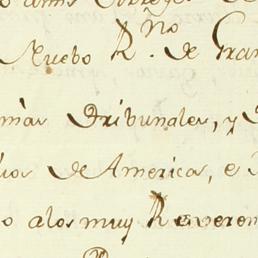 Nuebo R.no de Gran
mas Tribunales, y
de America, e
o alos muy Reveren